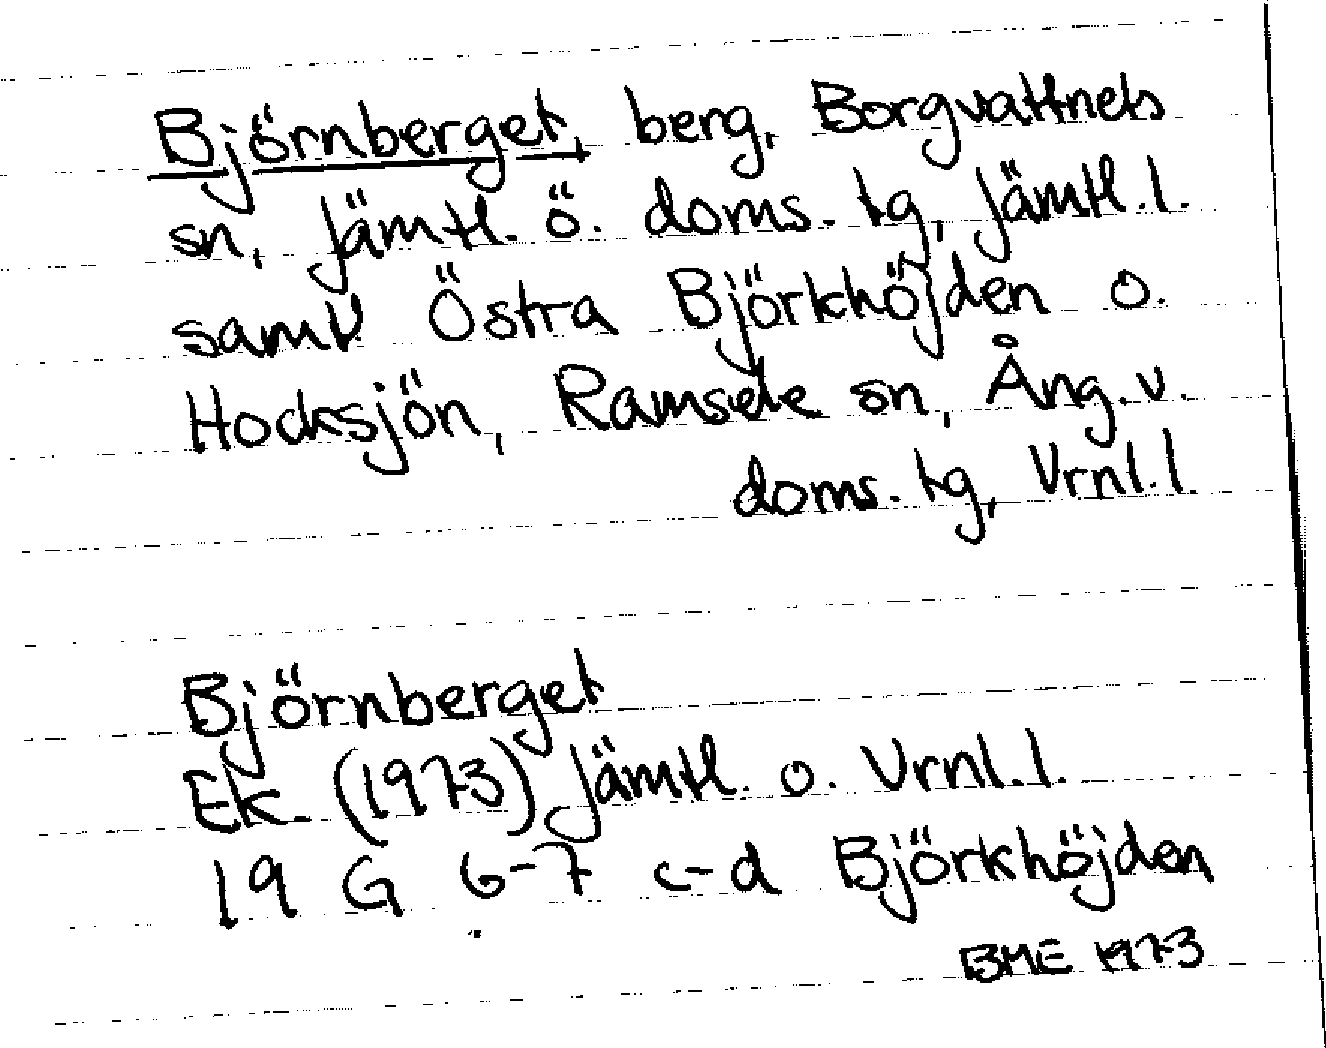 Björnberget, berg, Borgvattnets
sn, Jämtl. ö. doms. tg, Jämtl. l.
samt Östra Björkhöjden o.
Hocksjön, Ramsele sn, Ång. v.
doms. tg, Vrnl. l.
Björnberget
Ek. (1973) Jämtl. o. Vrnl. l.
19 G 6-7 c-d Björkhöjden
BME 1973